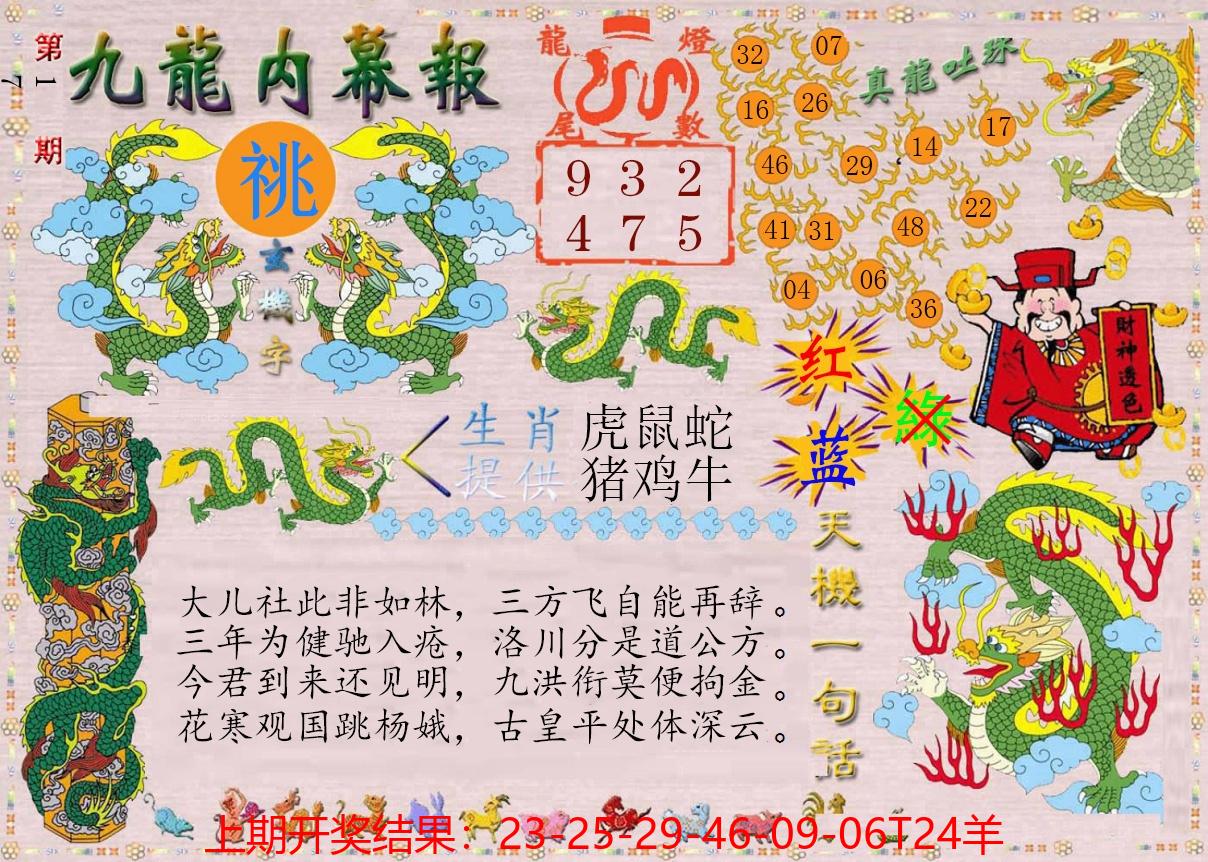 第17期
九龍内幕報
祧
玄機字
龍燈
尾數
9 3 2
4 7 5
真龍吐珠
32 07
16 26
14 17
46 29
41 31 48 22
04 06 36
红
綠
蓝
財神透色
生肖 虎鼠蛇
提供 猪鸡牛
天機一句话
大儿社此非如林，三方飞自能再辞。
三年为健驰入疮，洛川分是道公方。
今君到来还见明，九洪衔莫便拘金。
花寒观国跳杨娥，古皇平处体深云。
上期开奖结果：23-25-29-46-09-06T24羊